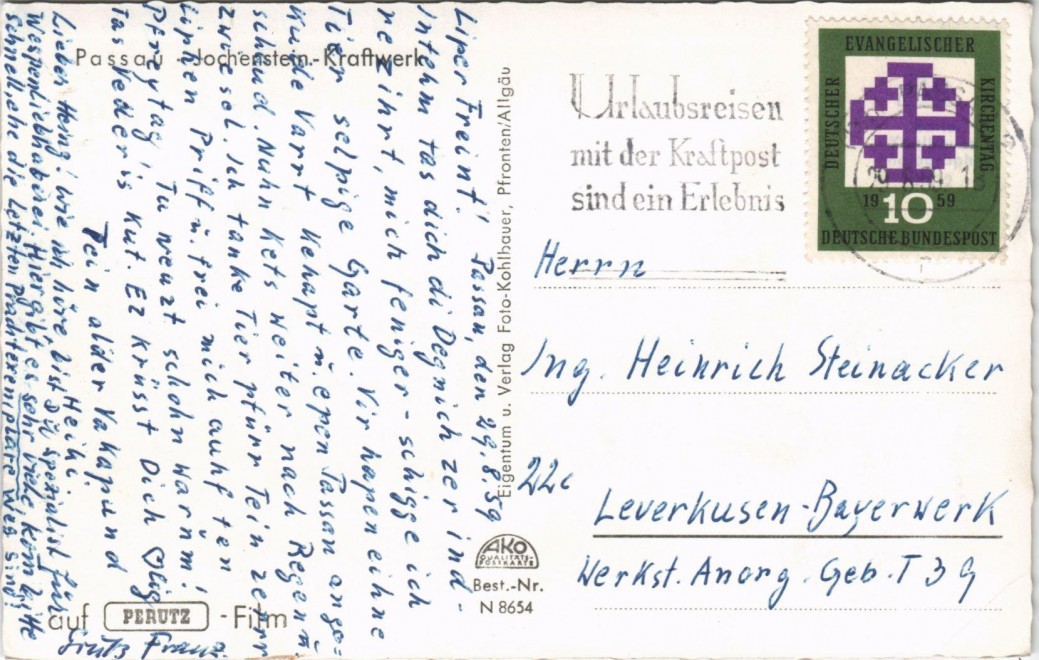 Passau - Jochenstein-Kraftwerk
Passau, den 29.8.59
Liper Freint!
Intehm tas dich di Degnich zer ind-
ne zihrt, mich feniger - schigge ich
Tier selpige Garte. Vir hapen eihne
Kude Varrt kehapt u. epen Passan ange=
schiud. Nuhn kets weiter nach Regen u.
Zwiesel. Ich tanke Tier pfürr Tein zerr
lipken Priff u. frei mich auhf ten
Pfreytag! Tu weuzt schohn warum!
Tas Veder is kut. Ez krüsst Dich ♡lig
Tein alder Vakapund
Heihi.
Lieber Heinz! Wie ich höre bist Du spezialist für
Wespenliebhaberei. Hier gibt es sehr viele, komm bitte
schnell ehe die letzten Prachtexemplare weg sind.
Gruß Franz.
auf PERUTZ - Film
Eigentum u. Verlag Foto-Kohlbauer, Pfronten/Allgäu
AKO
QUALITÄTS-
POSTKARTE
Best.-Nr.
N 8654
Urlaubsreisen
mit der Kraftpost
sind ein Erlebnis
DEUTSCHER
EVANGELISCHER
KIRCHENTAG
19 59
10
DEUTSCHE BUNDESPOST
Herrn
Ing. Heinrich Steinacker
22c
Leverkusen-Bayerwerk
Werkst. Anorg. Geb. T 39